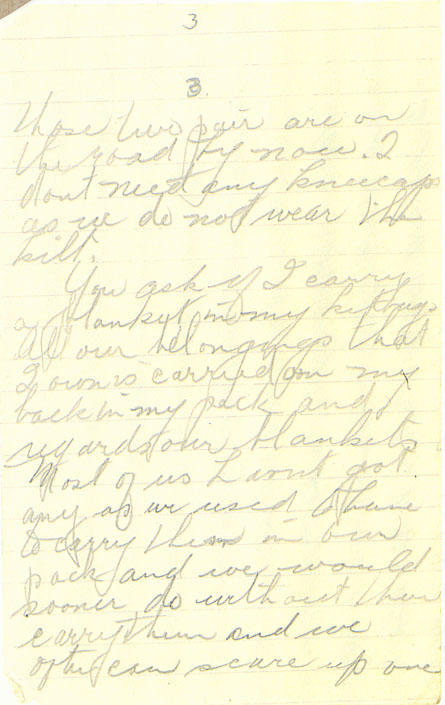 3
3.
those two pair are on
the road by now. I
dont need any kneecaps
as we do not wear the
kilt.
You ask if I carry
a blanket in my kitbag
all our belongings that
I own is carried on my
back in my pack and
regards our blankets
Most of us havnt got
any as we used to have
to carry them in our
pack and we would
sooner do without then
carry them and we
often can scare up one